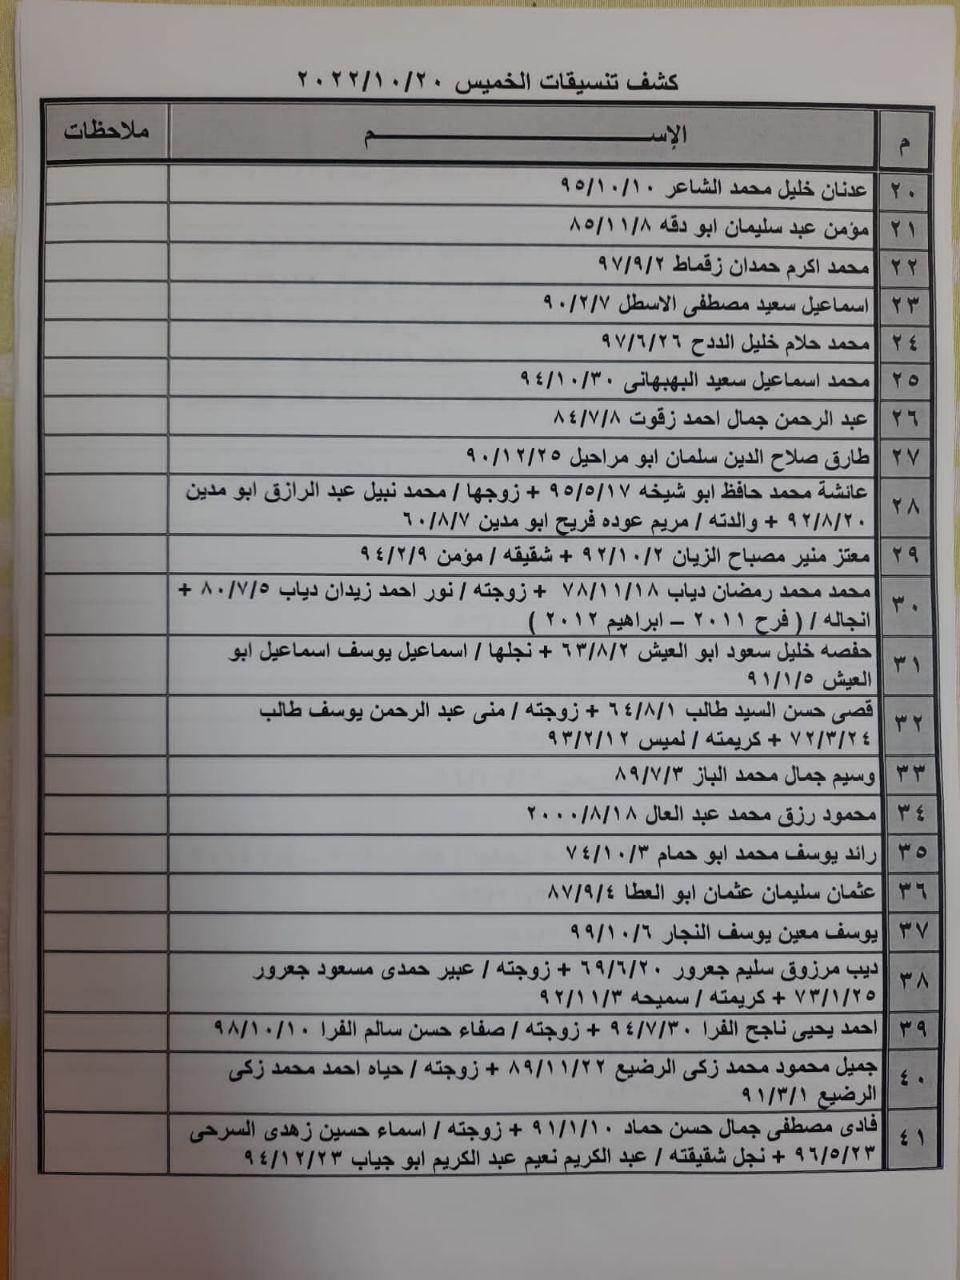 كشف تنسيقات الخميس ٢٠٢٢/١٠/٢٠
م الإســـــــــــــــــــــم ملاحظات
٢٠ عدنان خليل محمد الشاعر ٩٥/١٠/١٠
٢١ مؤمن عبد سليمان ابو دقه ٨٥/١١/٨
٢٢ محمد اكرم حمدان زقماط ٩٧/٩/٢
٢٣ اسماعيل سعيد مصطفى الاسطل ٩٠/٢/٧
٢٤ محمد حلام خليل الددح ٩٧/٦/٢٦
٢٥ محمد اسماعيل سعيد البهبهانى ٩٤/١٠/٣٠
٢٦ عبد الرحمن جمال احمد زقوت ٨٤/٧/٨
٢٧ طارق صلاح الدين سلمان ابو مراحيل ٩٠/١٢/٢٥
٢٨ عائشة محمد حافظ ابو شيخه ٩٥/٥/١٧ + زوجها / محمد نبيل عبد الرازق ابو مدين
٩٢/٨/٢٠ + والدته / مريم عوده فريح ابو مدين ٦٠/٨/٧
٢٩ معتز منير مصباح الزيان ٩٢/١٠/٢ + شقيقه / مؤمن ٩٤/٢/٩
٣٠ محمد محمد رمضان دياب ٧٨/١١/١٨ + زوجته / نور احمد زيدان دياب ٨٠/٧/٥ +
انجاله / ( فرح ٢٠١١ – ابراهيم ٢٠١٢ )
٣١ حفصه خليل سعود ابو العيش ٦٣/٨/٢ + نجلها / اسماعيل يوسف اسماعيل ابو
العيش ٩١/١/٥
٣٢ قصى حسن السيد طالب ٦٤/٨/١ + زوجته / منى عبد الرحمن يوسف طالب
٧٢/٣/٢٤ + كريمته / لميس ٩٣/٢/١٢
٣٣ وسيم جمال محمد الباز ٨٩/٧/٣
٣٤ محمود رزق محمد عبد العال ٢٠٠٠/٨/١٨
٣٥ رائد يوسف محمد ابو حمام ٧٤/١٠/٣
٣٦ عثمان سليمان عثمان ابو العطا ٨٧/٩/٤
٣٧ يوسف معين يوسف النجار ٩٩/١٠/٦
٣٨ ديب مرزوق سليم جعرور ٦٩/٦/٢٠ + زوجته / عبير حمدى مسعود جعرور
٧٣/١/٢٥ + كريمته / سميحه ٩٢/١١/٣
٣٩ احمد يحيى ناجح الفرا ٩٤/٧/٣٠ + زوجته / صفاء حسن سالم الفرا ٩٨/١٠/١٠
٤٠ جميل محمود محمد زكى الرضيع ٨٩/١١/٢٢ + زوجته / حياه احمد محمد زكى
الرضيع ٩١/٣/١
٤١ فادى مصطفى جمال حسن حماد ٩١/١/١٠ + زوجته / اسماء حسين زهدى السرحى
٩٦/٥/٢٣ + نجل شقيقته / عبد الكريم نعيم عبد الكريم ابو جياب ٩٤/١٢/٢٣